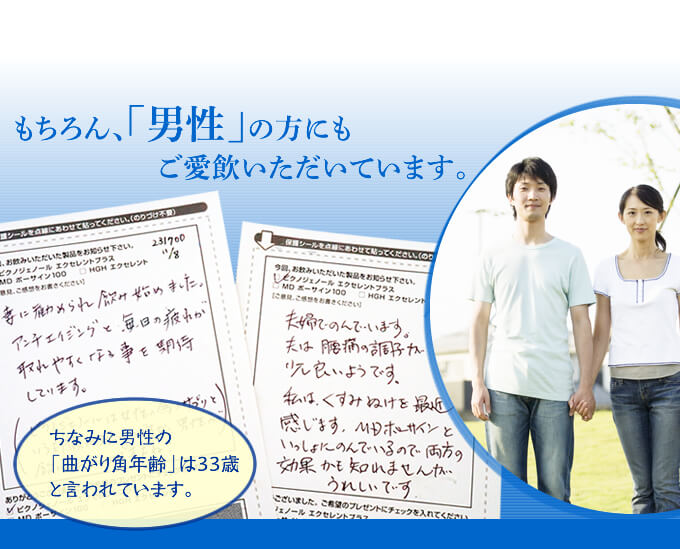 もちろん、「男性」の方にも
ご愛飲いただいています。
保護シールを点線にあわせて貼ってください。(のりづけ不要)
231700
11/8
お飲みいただいた製品をお知らせ下さい。
ピクノジェノール エクセレントプラス
MD ボーサイン100 □ HGH エクセレント
ご意見、ご感想をお書きください
妻に勧められ飲み始めました。
アンチエイジングと毎日の疲れが
取れやすくなる事を期待
しています。
保護シールを点線にあわせて貼ってください。(のり
今回、お飲みいただいた製品をお知らせ下さい。
ピクノジェノール エクセレントプラス
□ MD ボーサイン100 □ HGH エクセレント
ご意見、ご感想をお書きください
夫婦でのんでいます。
夫は腰痛の調子が
少し良いようです。
私は、くすみぬけを最近
感じます。MDボーサインと
いっしょにのんでいるので両方の
効果かも知れませんが
うれしいです
ちなみに男性の
「曲がり角年齢」は33歳
と言われています。
ピクノジェノール エクセレントプラス
MD ボーサイン100
ございました。ご希望のプレゼントにチェックを入れてください
ジェノール エクセレントプラス